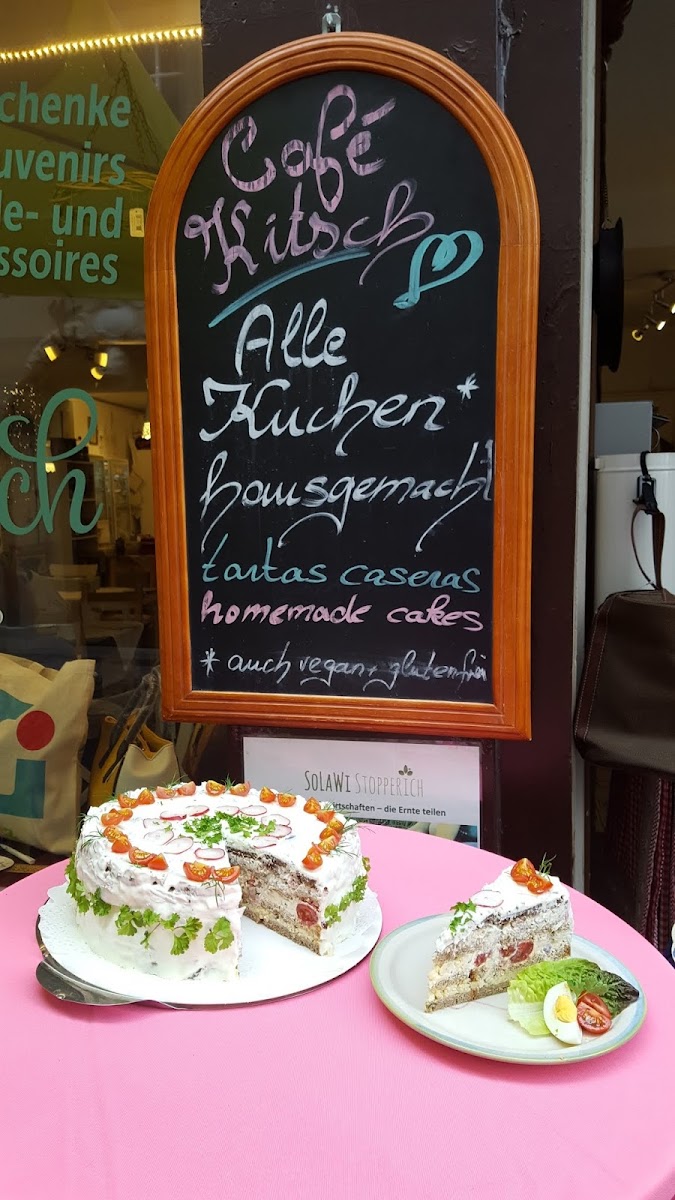 chenke
uvenirs
de- und
ssoires
ch
Café
Kitsch
Alle
Kuchen*
hausgemacht
tartas caseras
homemade cakes
* auch vegan + glutenfrei
SOLAWI STOPPERICH
irtschaften – die Ernte teilen